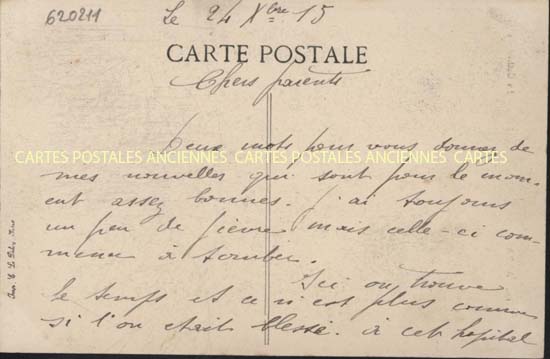 620211
Le 24 Xbre 15
CARTE POSTALE
Chers parents
Deux mots pour vous donner de
CARTES POSTALES ANCIENNES CARTES POSTALES ANCIENNES CARTES
mes nouvelles qui sont pour le mom-
ent assez bonnes. j'ai toujours
un peu de fièvre mais celle-ci com-
mence à tomber.
Ici on trouve
le temps et ce n'est plus comme
si l'on était blessé. à cet hopital
Imp. E. Le Deley, Paris